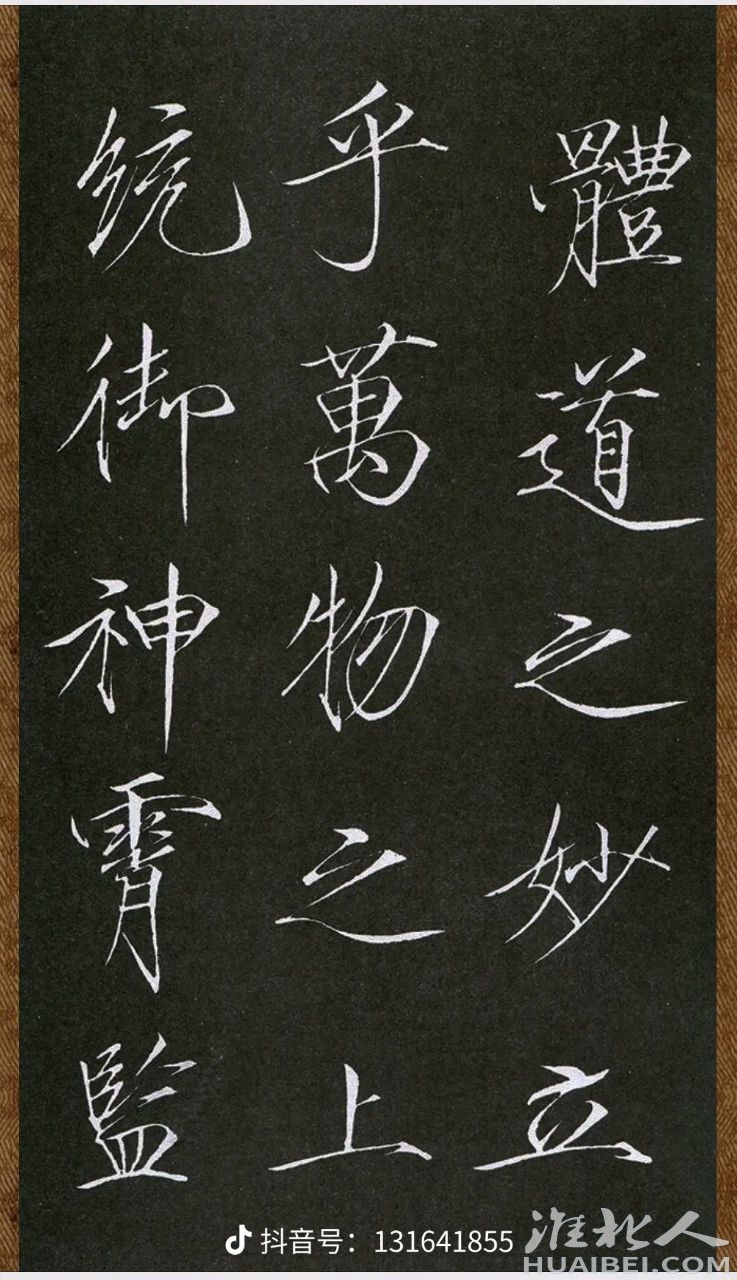 體道之妙立
乎萬物之上
統御神霄監
抖音号：131641855
淮北人
HUAIBEI.COM